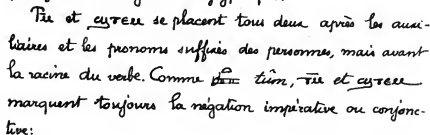 ⲧ̄ⲙ et ϣⲧⲉⲙ se placent tous deux après les auxi-
liaires et les pronoms suffixes des personnes, mais avant
la racine du verbe. Comme tûm, ⲧ̄ⲙ et ϣⲧⲉⲙ
marquent toujours la négation impérative ou conjonc-
tive: